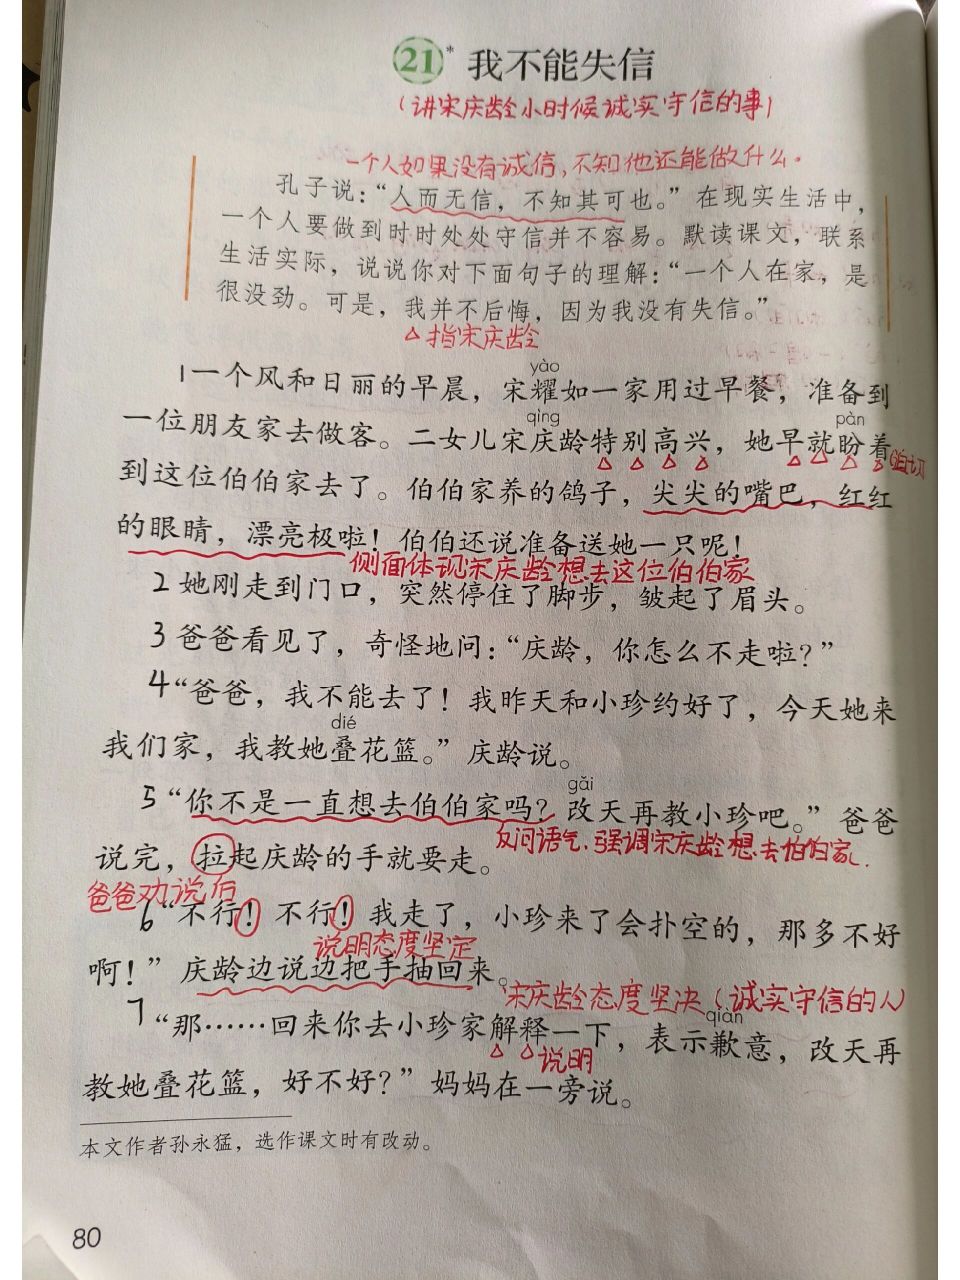 21* 我不能失信
(讲宋庆龄小时候诚实守信的事)
一个人如果没有诚信,不知他还能做什么.
孔子说:“人而无信,不知其可也。”在现实生活中,
一个人要做到时时处处守信并不容易。默读课文,联系
生活实际,说说你对下面句子的理解:“一个人在家,是
很没劲。可是,我并不后悔,因为我没有失信。”
指宋庆龄
yào
1一个风和日丽的早晨,宋耀如一家用过早餐,准备到
qìng pàn
一位朋友家去做客。二女儿宋庆龄特别高兴,她早就盼着
到这位伯伯家去了。伯伯家养的鸽子,尖尖的嘴巴,红红
的眼睛,漂亮极啦!伯伯还说准备送她一只呢!
侧面体现宋庆龄想去这位伯伯家
2 她刚走到门口,突然停住了脚步,皱起了眉头。
3 爸爸看见了,奇怪地问:“庆龄,你怎么不走啦?”
4 “爸爸,我不能去了!我昨天和小珍约好了,今天她来
dié
我们家,我教她叠花篮。”庆龄说。
gǎi
5 “你不是一直想去伯伯家吗?改天再教小珍吧。”爸爸
反问语气.强调宋庆龄想去伯伯家.
说完,拉起庆龄的手就要走。
爸爸劝说后
6 “不行!不行!我走了,小珍来了会扑空的,那多不好
说明态度坚定
啊!”庆龄边说边把手抽回来。
宋庆龄态度坚决(诚实守信的人)
qiàn
7 “那……回来你去小珍家解释一下,表示歉意,改天再
说明
教她叠花篮,好不好?”妈妈在一旁说。
本文作者孙永猛,选作课文时有改动。
80